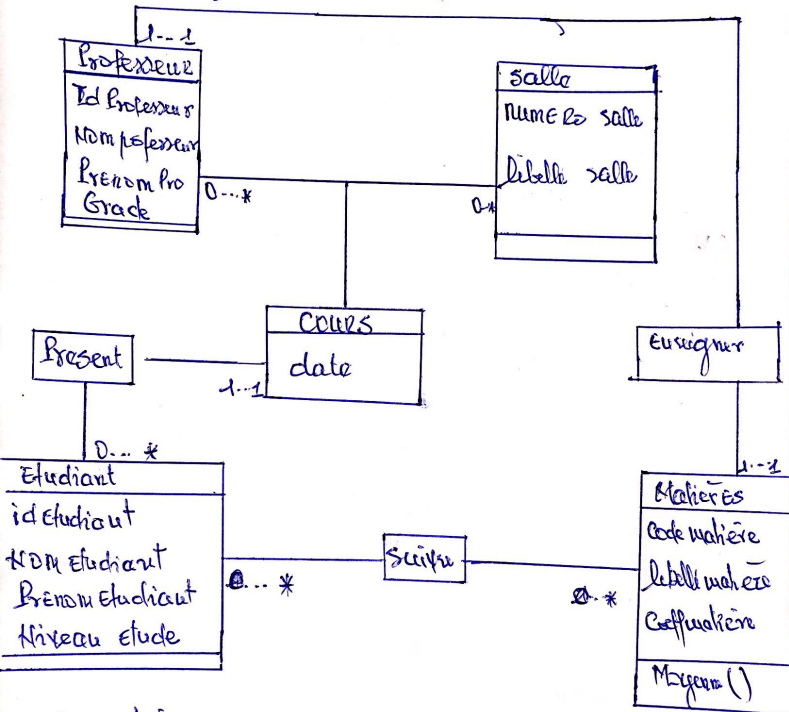 1...1
Professeur
Id Professeur
Nom pofesseur
Prenom Pro
Grade
0...*
Salle
NUMERO salle
libelle salle
0-*
COURS
date
1...1
Present
Enseigner
0...*
Etudiant
id Etudiant
NOM Etudiant
Prenom Etudiant
Niveau Etude
0...*
Suivre
0..*
1..1
Matières
Code matière
libelle matière
Coeffmatière
Moyenne ()